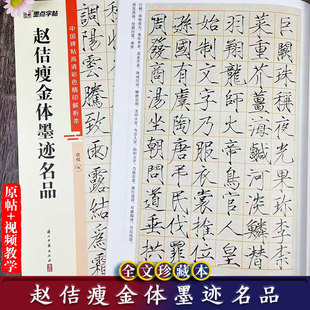 墨点字帖
中国碑帖高清彩色精印解析本
赵佶瘦金体墨迹名品
調陽雲騰致雨露結為霜
巨闕珠稱夜光果珍李柰
菜重芥薑海鹹河淡鱗潛
羽翔龍師火帝鳥官人皇
始制文字乃服衣裳推位
國有虞陶唐弔民伐罪
周發商湯坐朝問道垂拱
原帖+视频教学
全文珍藏本
赵佶瘦金体墨迹名品